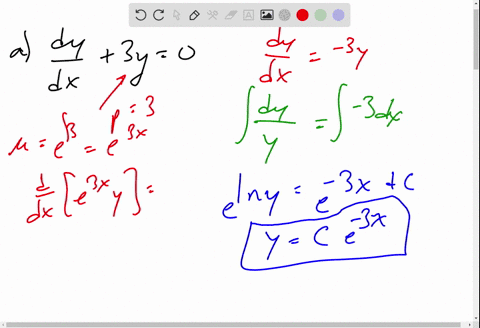 a) dy/dx + 3y = 0
p = 3
μ = e^∫3 = e^3x
d/dx [e^3x y] =
dy/dx = -3y
∫ dy/y = ∫ -3dx
e^ln y = e^-3x + C
y = C e^-3x